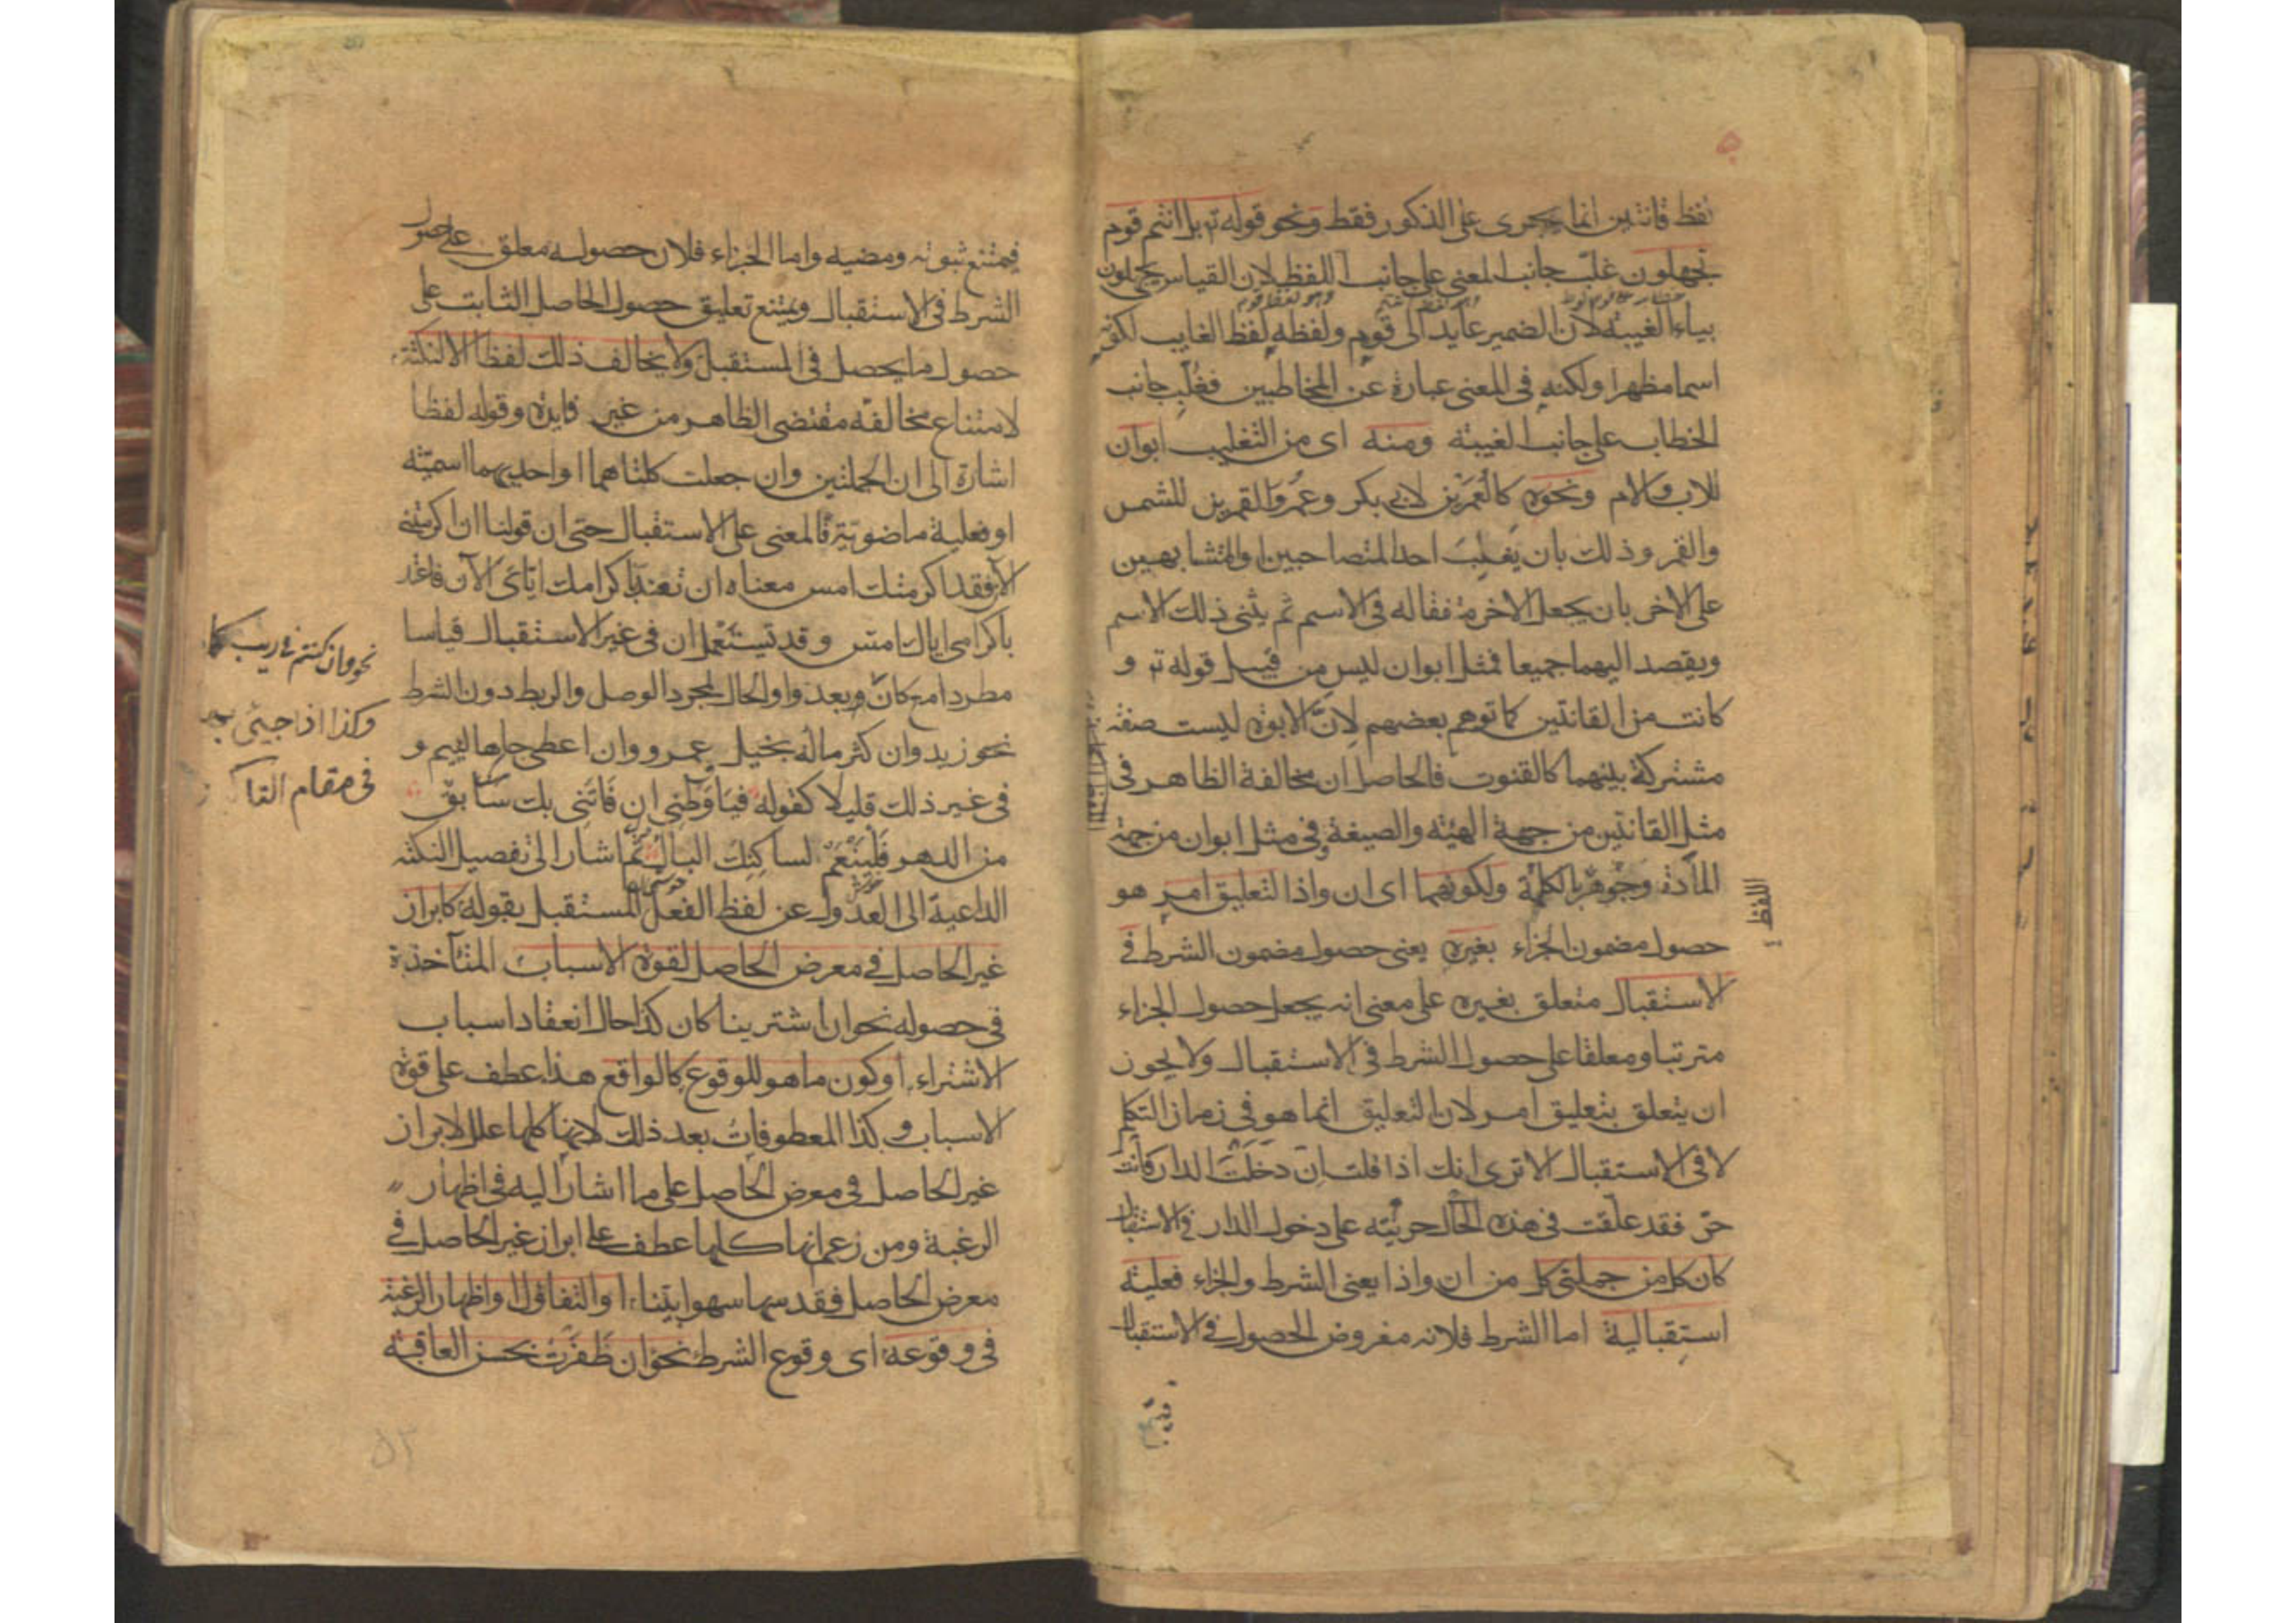 لفظ قانتين انما يجرى على الذكور فقط ونحو قوله تع بل انتم قوم
تجهلون غلّب جانب المعنى على جانب اللفظ لان القياس يجهلون
بياء الغيبة لان الضمير عايد الى قوم ولفظه لفظ الغايب لكونه
اسما مظهرا ولكنه فى المعنى عبارة عن المخاطبين فغُلّب جانب
الخطاب على جانب الغيبة ومنه اى من التغليب ابوان
للاب والام ونحوه كالعُمَرَيْن لابى بكر وعُمر والقمرين للشمس
والقمر وذلك بان يغلب احد المتصاحبين او المتشابهين
على الاخر بان يجعل الاخر متفقا له فى الاسم ثم يثنى ذلك الاسم
ويقصد اليهما جميعا فمثل ابوان ليس من قبيل قوله تع و
كانت من القانتين كما توهم بعضهم لانّ الابوة ليست صفة
مشتركة بينهما كالقنوت فالحاصل ان مخالفة الظاهر فى
مثل القانتين من جهة الهيئة والصيغة وفى مثل ابوان من جهة
المادّة وجوهر الكلمة ولكونهما اى ان واذا لتعليق امر هو
اللفظ
حصول مضمون الجزاء بغيره يعنى حصول مضمون الشرط فى
الاستقبال متعلق بغيره على معنى انه يجعل حصول الجزاء
مترتبا ومعلقا على حصول الشرط فى الاستقبال ولا يجوز
ان يتعلق بتعليق امر لان التعليق انما هو فى زمان التكلم
لا فى الاستقبال الا ترى انك اذا قلت ان دخلت الدار فانت
حرّ فقد علّقت فى هذه الحال حريّته على دخول الدار فى الاستقبال
كان كل من جملتى كل من ان واذا يعنى الشرط والجزاء فعلية
استقبالية اما الشرط فلانه مفروض الحصول فى الاستقبال
فيمتنع ثبوته ومضيه واما الجزاء فلان حصوله معلق على حصول
الشرط فى الاستقبال ويمتنع تعليق حصول الحاصل الثابت على
حصول ما يحصل فى المستقبل ولا يخالف ذلك لفظا الا لنكتة
لامتناع مخالفة مقتضى الظاهر من غير فايدة وقوله لفظا
اشارة الى ان الجملتين وان جعلت كلتاهما او احديهما اسمية
او فعلية ماضوية فالمعنى على الاستقبال حتى ان قولنا ان اكرمتنى
الآن فقد اكرمتك امس معناه ان تعتدّ باكرامك ايّاى الآن فاعتد
باكرامى اياك امس وقد تستعمل ان فى غير الاستقبال قياسا
مطردا مع كان وبعد واو الحال لمجرد الوصل والربط دون الشرط
نحو وان كنتم فى ريب كما
وكذا اذا جيئ
فى مقام التا
نحو زيد وان كثر ماله بخيل عمرو وان اعطى جاها لئيم و
فى غير ذلك قليلا كقوله فيا وَطَنى ان فَاتَنِى بك سابق
من الدهر فَلْيَنْعَم لساكنك البال ثم اشار الى تفصيل النكتة
الداعية الى العدول عن لفظ الفعل المستقبل بقوله كابراز
غير الحاصل فى معرض الحاصل لقوة الاسباب المتآخذة
فى حصوله نحو ان اشترينا كان كذا حال انعقاد اسباب
الاشتراء او كون ما هو للوقوع كالواقع هذا عطف على قوة
الاسباب وكذا المعطوفات بعد ذلك لانها كلها علل لابراز
غير الحاصل فى معرض الحاصل على ما اشار اليه فى اظهار
الرغبة ومن زعم انها كلها عطف على ابراز غير الحاصل فى
معرض الحاصل فقد سها سهوا بيّنا او التفاؤل او اظهار الرغبة
فى وقوعه اى وقوع الشرط نحو ان ظفرت بحسن العاقبة
٥٢